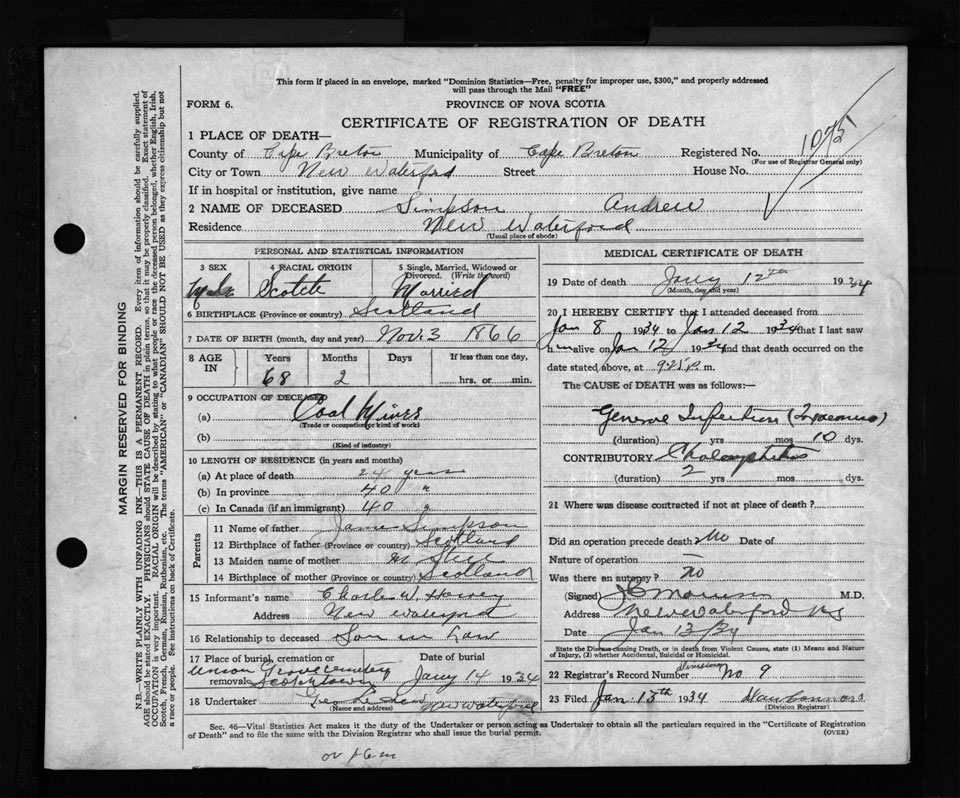 This form if placed in an envelope, marked "Dominion Statistics—Free, penalty for improper use, $300," and properly addressed
will pass through the Mail "FREE"
FORM 6.
PROVINCE OF NOVA SCOTIA
CERTIFICATE OF REGISTRATION OF DEATH
1 PLACE OF DEATH—
County of Cape Breton Municipality of Cape Breton Registered No. 1075
(For use of Registrar General only)
City or Town New Waterford Street House No.
If in hospital or institution, give name
2 NAME OF DECEASED Simpson Andrew
Residence New Waterford
(Usual place of abode)
PERSONAL AND STATISTICAL INFORMATION
3 SEX 4 RACIAL ORIGIN 5 Single, Married, Widowed or Divorced. (Write the word)
Scotch Married
6 BIRTHPLACE (Province or country) Scotland
7 DATE OF BIRTH (month, day and year) Nov. 3 1866
8 AGE IN Years Months Days If less than one day,
68 2 hrs. or min.
9 OCCUPATION OF DECEASED
(a) Coal Miner
(Trade or occupation or kind of work)
(b)
(Kind of industry)
10 LENGTH OF RESIDENCE (in years and months)
(a) At place of death 24 years
(b) In province 40 "
(c) In Canada (if an immigrant) 40 "
Parents
11 Name of father Simpson
12 Birthplace of father (Province or country) Scotland
13 Maiden name of mother
14 Birthplace of mother (Province or country) Scotland
15 Informant's name Charles W. Harvey
Address New Waterford
16 Relationship to deceased Son in Law
17 Place of burial, cremation or removal Date of burial
Union Grove Cemetery
Scotchtown Jany 14 1934
18 Undertaker New Waterford
(Name and address)
MEDICAL CERTIFICATE OF DEATH
19 Date of death July 12th 1934
(Month, day and year)
20 I HEREBY CERTIFY that I attended deceased from
Jan 8 1934 to Jan 12 1934 that I last saw
h im alive on Jan 12 1934 and that death occurred on the
date stated above, at m.
The CAUSE of DEATH was as follows:
General Infection
(duration) yrs mos 10 dys.
CONTRIBUTORY
(duration) 2 yrs mos dys.
21 Where was disease contracted if not at place of death?
Did an operation precede death? No Date of
Nature of operation —
Was there an autopsy? no
(Signed) M.D.
Address New Waterford NS
Date Jan 13/34
State the Disease causing Death, or in death from Violent Causes, state (1) Means and
Nature of Injury, (2) whether Accidental, Suicidal or Homicidal.
22 Registrar's Record Number Division No 9
23 Filed Jan 15th 1934
(Division Registrar)
Sec. 46—Vital Statistics Act makes it the duty of the Undertaker or person acting as Undertaker to obtain all the particulars required in the "Certificate of Registration
of Death" and to file the same with the Division Registrar who shall issue the burial permit.
(OVER)
MARGIN RESERVED FOR BINDING
N.B.—WRITE PLAINLY WITH UNFADING INK—THIS IS A PERMANENT RECORD. Every item of information should be carefully supplied.
AGE should be stated EXACTLY. PHYSICIANS should STATE CAUSE OF DEATH in plain terms, so that it may be properly classified. Exact statement of
OCCUPATION is very important. RACIAL ORIGIN will be described by stating to what people or race the deceased person belonged, whether English, Irish,
Scotch, French, German, Russian, Ruthenian, etc. The terms "AMERICAN" or "CANADIAN" SHOULD NOT BE USED as they express citizenship but not
a race or people. See instructions on back of Certificate.